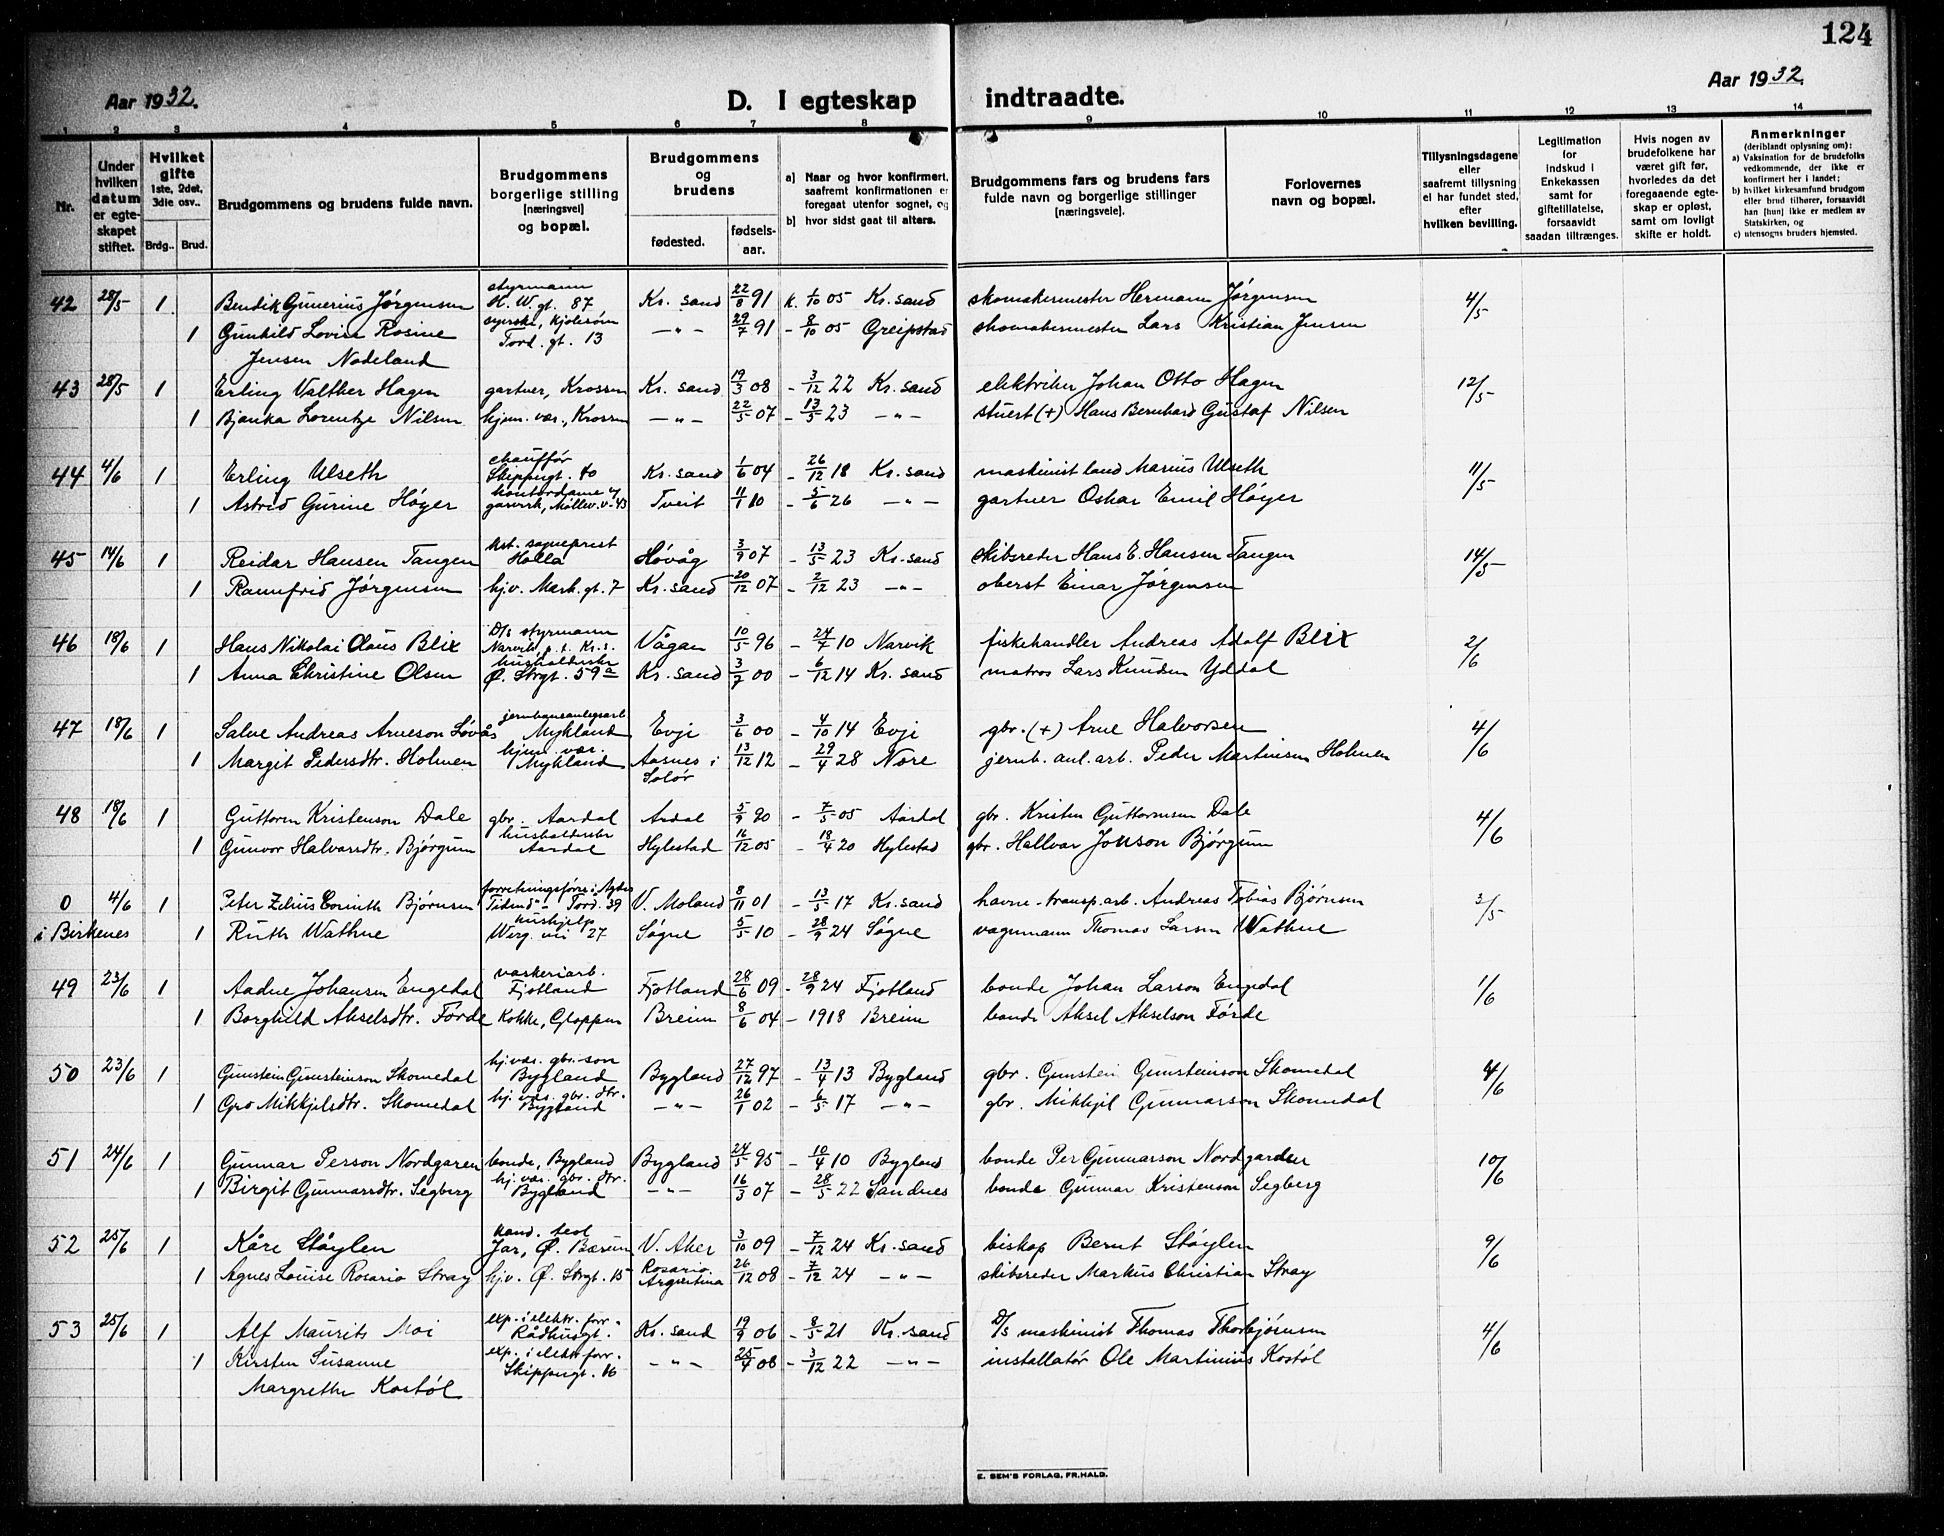 124
Aar 1932.
D. I egteskap indtraadte.
Aar 1932.
1 2 3 4 5 6 7 8 9 10 11 12 13 14
Nr.
Under hvilken datum er egteskapet stiftet.
Hvilket gifte 1ste, 2det, 3die osv..
Brdg.. Brud.
Brudgommens og brudens fulde navn.
Brudgommens borgerlige stilling [næringsvei] og bopæl.
Brudgommens og brudens
fødested. fødselsaar.
a] Naar og hvor konfirmert, saafremt konfirmationen er foregaat utenfor sognet, og
b) hvor sidst gaat til alters.
Brudgommens fars og brudens fars fulde navn og borgerlige stillinger [næringsveie].
Forlovernes navn og bopæl.
Tillysningsdagene eller saafremt tillysning ei har fundet sted, efter hvilken bevilling.
Legitimation for Indskud i Enkekassen samt for giftetillatelse, forsaavidt saadan tiltrænges.
Hvis nogen av brudefolkene har været gift før, hvorledes da det foregaaende egteskap er opløst, samt om lovligt skifte er holdt.
Anmerkninger (deriblandt oplysning om):
a) Vaksination for de brudefolks vedkommende, der ikke er konfirmert her i landet;
b) hvilket kirkesamfund brudgom eller brud tilhører, forsaavidt han [hun] ikke er medlem av Statskirken, og
c) utensogns bruders hjemsted.
42 28/5 1 Bendik Gunerius Jørgensen styrmann H. W. gt. 87 Kr. sand 22/8 91 k. 1/10 05 Kr. sand skomakermester Hermann Jørgensen 4/5
1 Gunhild Lovise Rosine syerske, Kjolesøm Tord. gt. 13 —„— 29/7 91 – 8/10 05 Greipstad skomakermester Lars Kristian Jensen
Jensen Nodeland
43 28/5 1 Erling Valther Hagen gartner, Krossen Kr. sand 19/3 08 – 3/12 22 Kr. sand elektriker Johan Otto Hagen 12/5
1 Bjanka Lorentze Nilsen hjem. vær., Krossen —„— 22/5 07 – 13/5 23 —„— stuert (+) Hans Bernhard Gustaf Nilsen
44 4/6 1 Erling Ulseth chauffør Skippugt. 40 Kr. sand 1/6 04 – 26/12 18 Kr. sand maskinist land Marius Ulseth 11/5
1 Astrid Gurine Høyer kontordame v/ garverk, Møllev. v. 43 Tveit 11/1 10 – 5/6 26 —„— gartner Oskar Emil Høyer
45 14/6 1 Reidar Hansen Tangen kst. sogneprest Holla Høvåg 3/9 07 – 13/5 23 Kr. sand skibsreder Hans E. Hansen Tangen 14/5
1 Rannfrid Jørgensen hj.v. Mark. gt. 7 Kr. sand 20/12 07 – 2/12 23 —„— oberst Einar Jørgensen
46 18/6 1 Hans Nikolai Olaus Blix D/s styrmann Narvik p. t. Kr. s. Vågan 10/5 96 – 24/7 10 Narvik fiskehandler Andreas Adolf Blix 2/6
1 Anna Christine Olsen husholderske Ø. Strgt. 59a Kr. sand 3/7 00 – 6/12 14 Kr. sand matros Lars Knudsen Yddal
47 18/6 1 Salve Andreas Arneson Løvås jernbaneanlegsarb Mykland Evje 3/6 00 – 4/10 14 Evje gbr. (+) Arne Halvorsen 4/6
1 Margit Pedersdtr. Holmen hjem. vær. Mykland Aasnes i Solør 13/12 12 – 29/4 28 Nore jernb. anl. arb. Peder Martinsen Holmen
48 18/6 1 Guttorm Kristenson Dale gbr. Aardal Ardal 5/9 90 – 7/5 05 Aardal gbr. Kristen Guttormsen Dale 4/6
1 Gunvor Halvarsdtr. Bjørgum husholderske Aardal Hylestad 16/12 05 – 18/4 20 Hylestad gbr. Hallvar Jonson Bjørgum
0 4/6 1 Peter Zelius Corinth Bjørnsen forretningsfører i Agder Tidend" – Tord. 39 V. Moland 8/11 01 – 13/5 17 Kr. sand havne-transp. arb. Andreas Tobias Bjørnsen 3/5
i Birkenes 1 Ruth Wathne hushjelp Werg. vei 27 Søgne 5/5 10 – 28/9 24 Søgne vognmann Thomas Larsen Wathne
49 23/6 1 Aadne Johansen Engedal vaskeriarb. Fjotland Fjotland 28/6 09 – 28/9 24 Fjotland bonde Johan Larson Engedal 1/6
1 Borghild Akselsdtr. Førde Kokke, Gloppen Breim 8/6 04 – 1918 Breim bonde Aksel Akselson Førde
50 23/6 1 Gunstein Gunsteinson Skomedal hj. vær. gbr. son Bygland Bygland 27/12 97 – 13/4 13 Bygland gbr. Gunstein Gunsteinson Skomedal 4/6
1 Gro Mikkjelsdtr. Skomedal hj. vær. gbr. dtr. Bygland —„— 26/1 02 – 6/5 17 —„— gbr. Mikkjel Gunnarson Skomedal
51 24/6 1 Gunnar Person Nordgaren bonde, Bygland Bygland 24/5 95 – 10/4 10 Bygland bonde Per Gunnarson Nordgarden 10/6
1 Birgit Gunnarsdtr. Segberg hj. vær. gbr. dtr. Bygland —„— 16/3 07 – 28/5 22 Sandnes bonde Gunnar Kristenson Segberg
52 25/6 1 Kåre Støylen kand. teol Jar, Ø. Bærum V. Aker 3/10 09 – 7/12 24 Kr. sand biskop Bernt Støylen 9/6
1 Agnes Louise Rosario Stray hj.v. Ø. Strgt. 15 Rosario. Argentina 26/12 08 – 7/12 24 —„— skibsreder Markus Christian Stray
53 25/6 1 Alf Maurits Moi exp. i elektr. forr. Rådhusgt. Kr. sand 19/9 06 – 8/5 21 Kr. sand D/s maskinist Thomas Thorbjørnsen 4/6
1 Kirsten Susanne exp. i elektr. forr. Skippugt. 16 —„— 25/4 08 – 3/12 22 —„— installatør Ole Martinius Kostøl
Margrethe Kostøl
E. SEM'S FORLAG, FR.HALD.